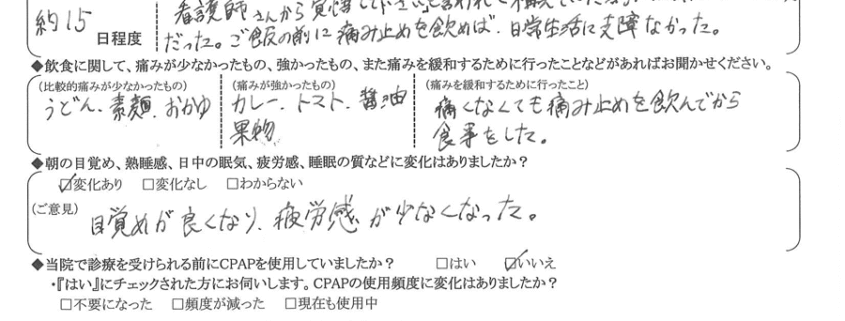 看護師さんから覚悟して下さいと言われて
約15日程度 だった。ご飯の前に痛み止めを飲めば、日常生活に支障なかった。
◆飲食に関して、痛みが少なかったもの、強かったもの、また痛みを緩和するために行ったことなどがあればお聞かせください。
(比較的痛みが少なかったもの) (痛みが強かったもの) (痛みを緩和するために行ったこと)
うどん、素麺、おかゆ カレー、トマト、醤油 痛くなくても痛み止めを飲んでから
果物 食事をした。
◆朝の目覚め、熟睡感、日中の眠気、疲労感、睡眠の質などに変化はありましたか?
☑変化あり □変化なし □わからない
(ご意見) 目覚めが良くなり、疲労感が少なくなった。
◆当院で診療を受けられる前にCPAPを使用していましたか? □はい ☑いいえ
・『はい』にチェックされた方にお伺いします。CPAPの使用頻度に変化はありましたか?
□不要になった □頻度が減った □現在も使用中